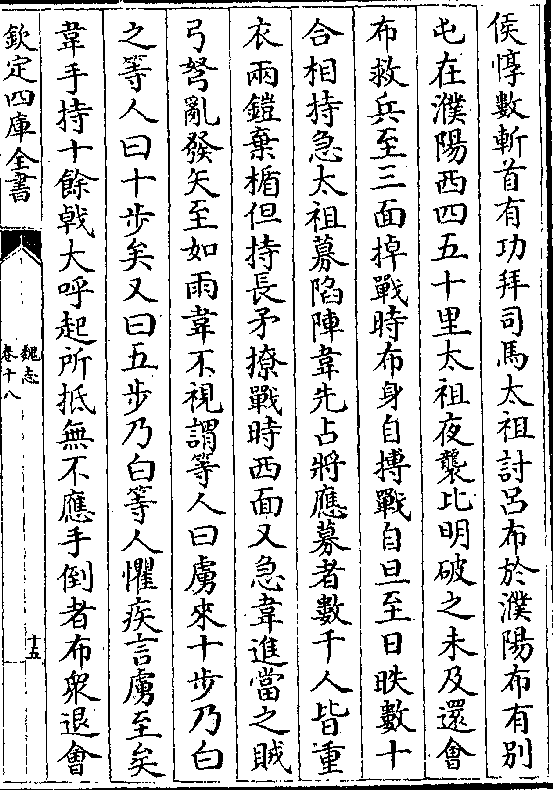 侯惇數斬首有功拜司馬太祖討呂布於濮陽布有別
屯在濮陽西四五十里太祖夜襲比明破之未及還會
布救兵至三面掉戰時布身自搏戰自旦至日昳數十
合相持急太祖募陷陣韋先占將應募者數千人皆重
衣兩鎧棄楯但持長矛撩戰時西面又急韋進當之賊
弓弩亂發矢至如雨韋不視謂等人曰虜來十步乃白
之等人曰十步矣又曰五步乃白等人懼疾言虜至矣
韋手持十餘戟大呼起所抵無不應手倒者布衆退會
欽定四庫全書
魏志
卷十八
十五